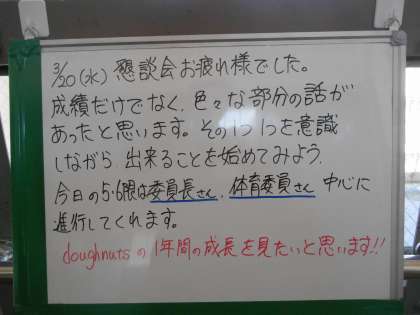 3/20(水) 懇談会お疲れ様でした。
成績だけでなく、色々な部分の話が
あったと思います。その1つ1つを意識
しながら、出来ることを始めてみよう。
今日の5・6限は委員長さん、体育委員さん 中心に
進行してくれます。
doughnutsの1年間の成長を見たいと思います!!